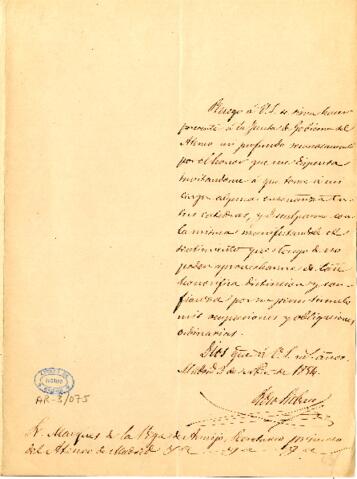 Ruego á V.S. se sirva hacer
presente á la Junta de Gobierno del
Ateneo mi profundo reconocimiento
por el honor que me dispensa
invitandome á que tome á mi
cargo alguna enseñanza en
sus catedras, y disculparme con
la misma manifestandole el
sentimiento que tengo de no
poder aprovecharme de tan
honorifica distincion y con
fianza por no permitirmelo
mis ocupaciones y obligaciones
ordinarias.
Dios gue á V.S. ms. años.
Madrid 2 de 1854.
AR-3/075
Sr. Marques de la Vega de Armijo, Secretario primero
del Ateneo de Madrid